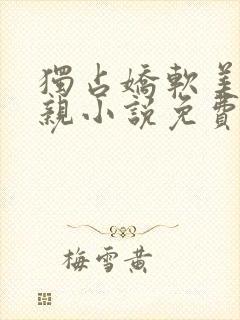 獨占嬌軟美
親小說免費
梅雪黃